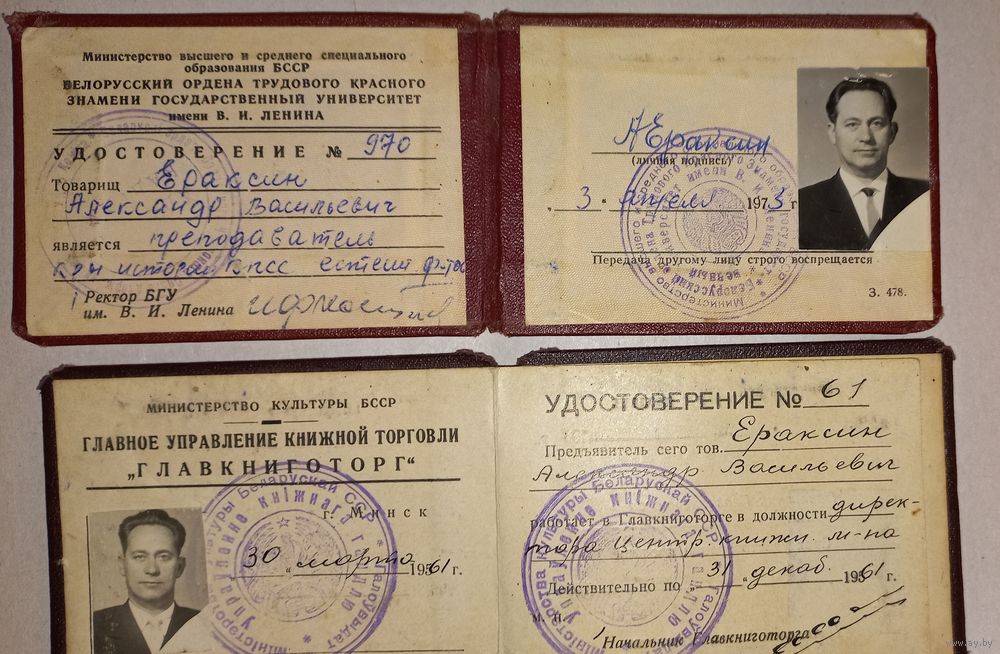 Министерство высшего и среднего специального
образования БССР
БЕЛОРУССКИЙ ОРДЕНА ТРУДОВОГО КРАСНОГО
ЗНАМЕНИ ГОСУДАРСТВЕННЫЙ УНИВЕРСИТЕТ
имени В. И. ЛЕНИНА
УДОСТОВЕРЕНИЕ № 970
Товарищ Ераксин
Александр Васильевич
является преподаватель
истории КПСС естест ф-тов
Ректор БГУ
им. В. И. Ленина
АЕраксин
(личная подпись)
„ 3 " апреля 1973 г
Передача другому лицу строго воспрещается
З. 478.
МИНИСТЕРСТВО КУЛЬТУРЫ БССР
ГЛАВНОЕ УПРАВЛЕНИЕ КНИЖНОЙ ТОРГОВЛИ
„ГЛАВКНИГОТОРГ“
г. Минск
30 „ марта 1961 г.
УДОСТОВЕРЕНИЕ № 61
Предъявитель сего тов. Ераксин
Александр Васильевич
работает в Главкниготорге в должности дирек-
тора Центр книжн. м-на
Действительно по „31„ декаб. 1961 г.
м. п.
Начальник Главкниготорга
www.ay.by